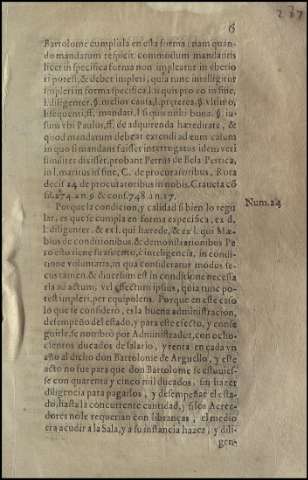 6
Bartolome cumplila en esta forma: nam quan-
do mandatum respicit commodum mandantis
licet in specifica forma non impleatur in diverso
ri potest, & debet impleri, quia tunc intelligitur
impleri in forma specifica. l. si quis pro eo in fine,
l. diligenter. §. melior causa, l. præterea. §. vltimo,
& sequenti, ff. mandati, l. si quis mihi bona. §. iu-
sum vbi Paulus, ff. de adquirenda hæreditate, &
quod mandatum debeat extendi ad eum casum
in quo si mandans fuisset interrogatus idem veri
similiter dixisset, probant Petrus de Bela Pertica,
in l. maritus in fine, C. de procuratoribus, Rota
decis. 24. de procuratoribus in nobis. Craueta cõ
sil. 274. n. 9. & cons. 748. n. 17.
Porque la condicion, y calidad si bien lo regu-
lar, es que se cumpla en forma especifica, ex d.
l. diligenter. & ex l. qui hærede, & ex l. Mæ-
bius de conditionibus, & demonstrationibus Pe
ro esto tiene su assiento, è inteligencia, in condi-
tione voluntaria, in qua consideratur modus se-
cus tamen, & diuersum est in conditione necessa
ria ad actum, vel effectum ipsius, quia tunc po-
test impleri, per equipolens. Porque en este caso
lo que se considerò, es la buena administracion,
desempeño del estado, y para este efecto, y conse
guirle, se nombrò por Administrador, con ocho-
cientos ducados de salario, y renta en cada vn
año al dicho don Bartolome de Arguello, y este
acto no fue para que don Bartolome se estuuies-
se con quarenta y cinco mil ducados, sin hazer
diligencia para pagarlos, y desempeñar el esta-
do, hasta la concurrente cantidad, y si los Acree-
dores no le requerian con libranças, el medio
era acudir a la Sala, y a su instancia hazer, y dili-
gen-
Num. 24